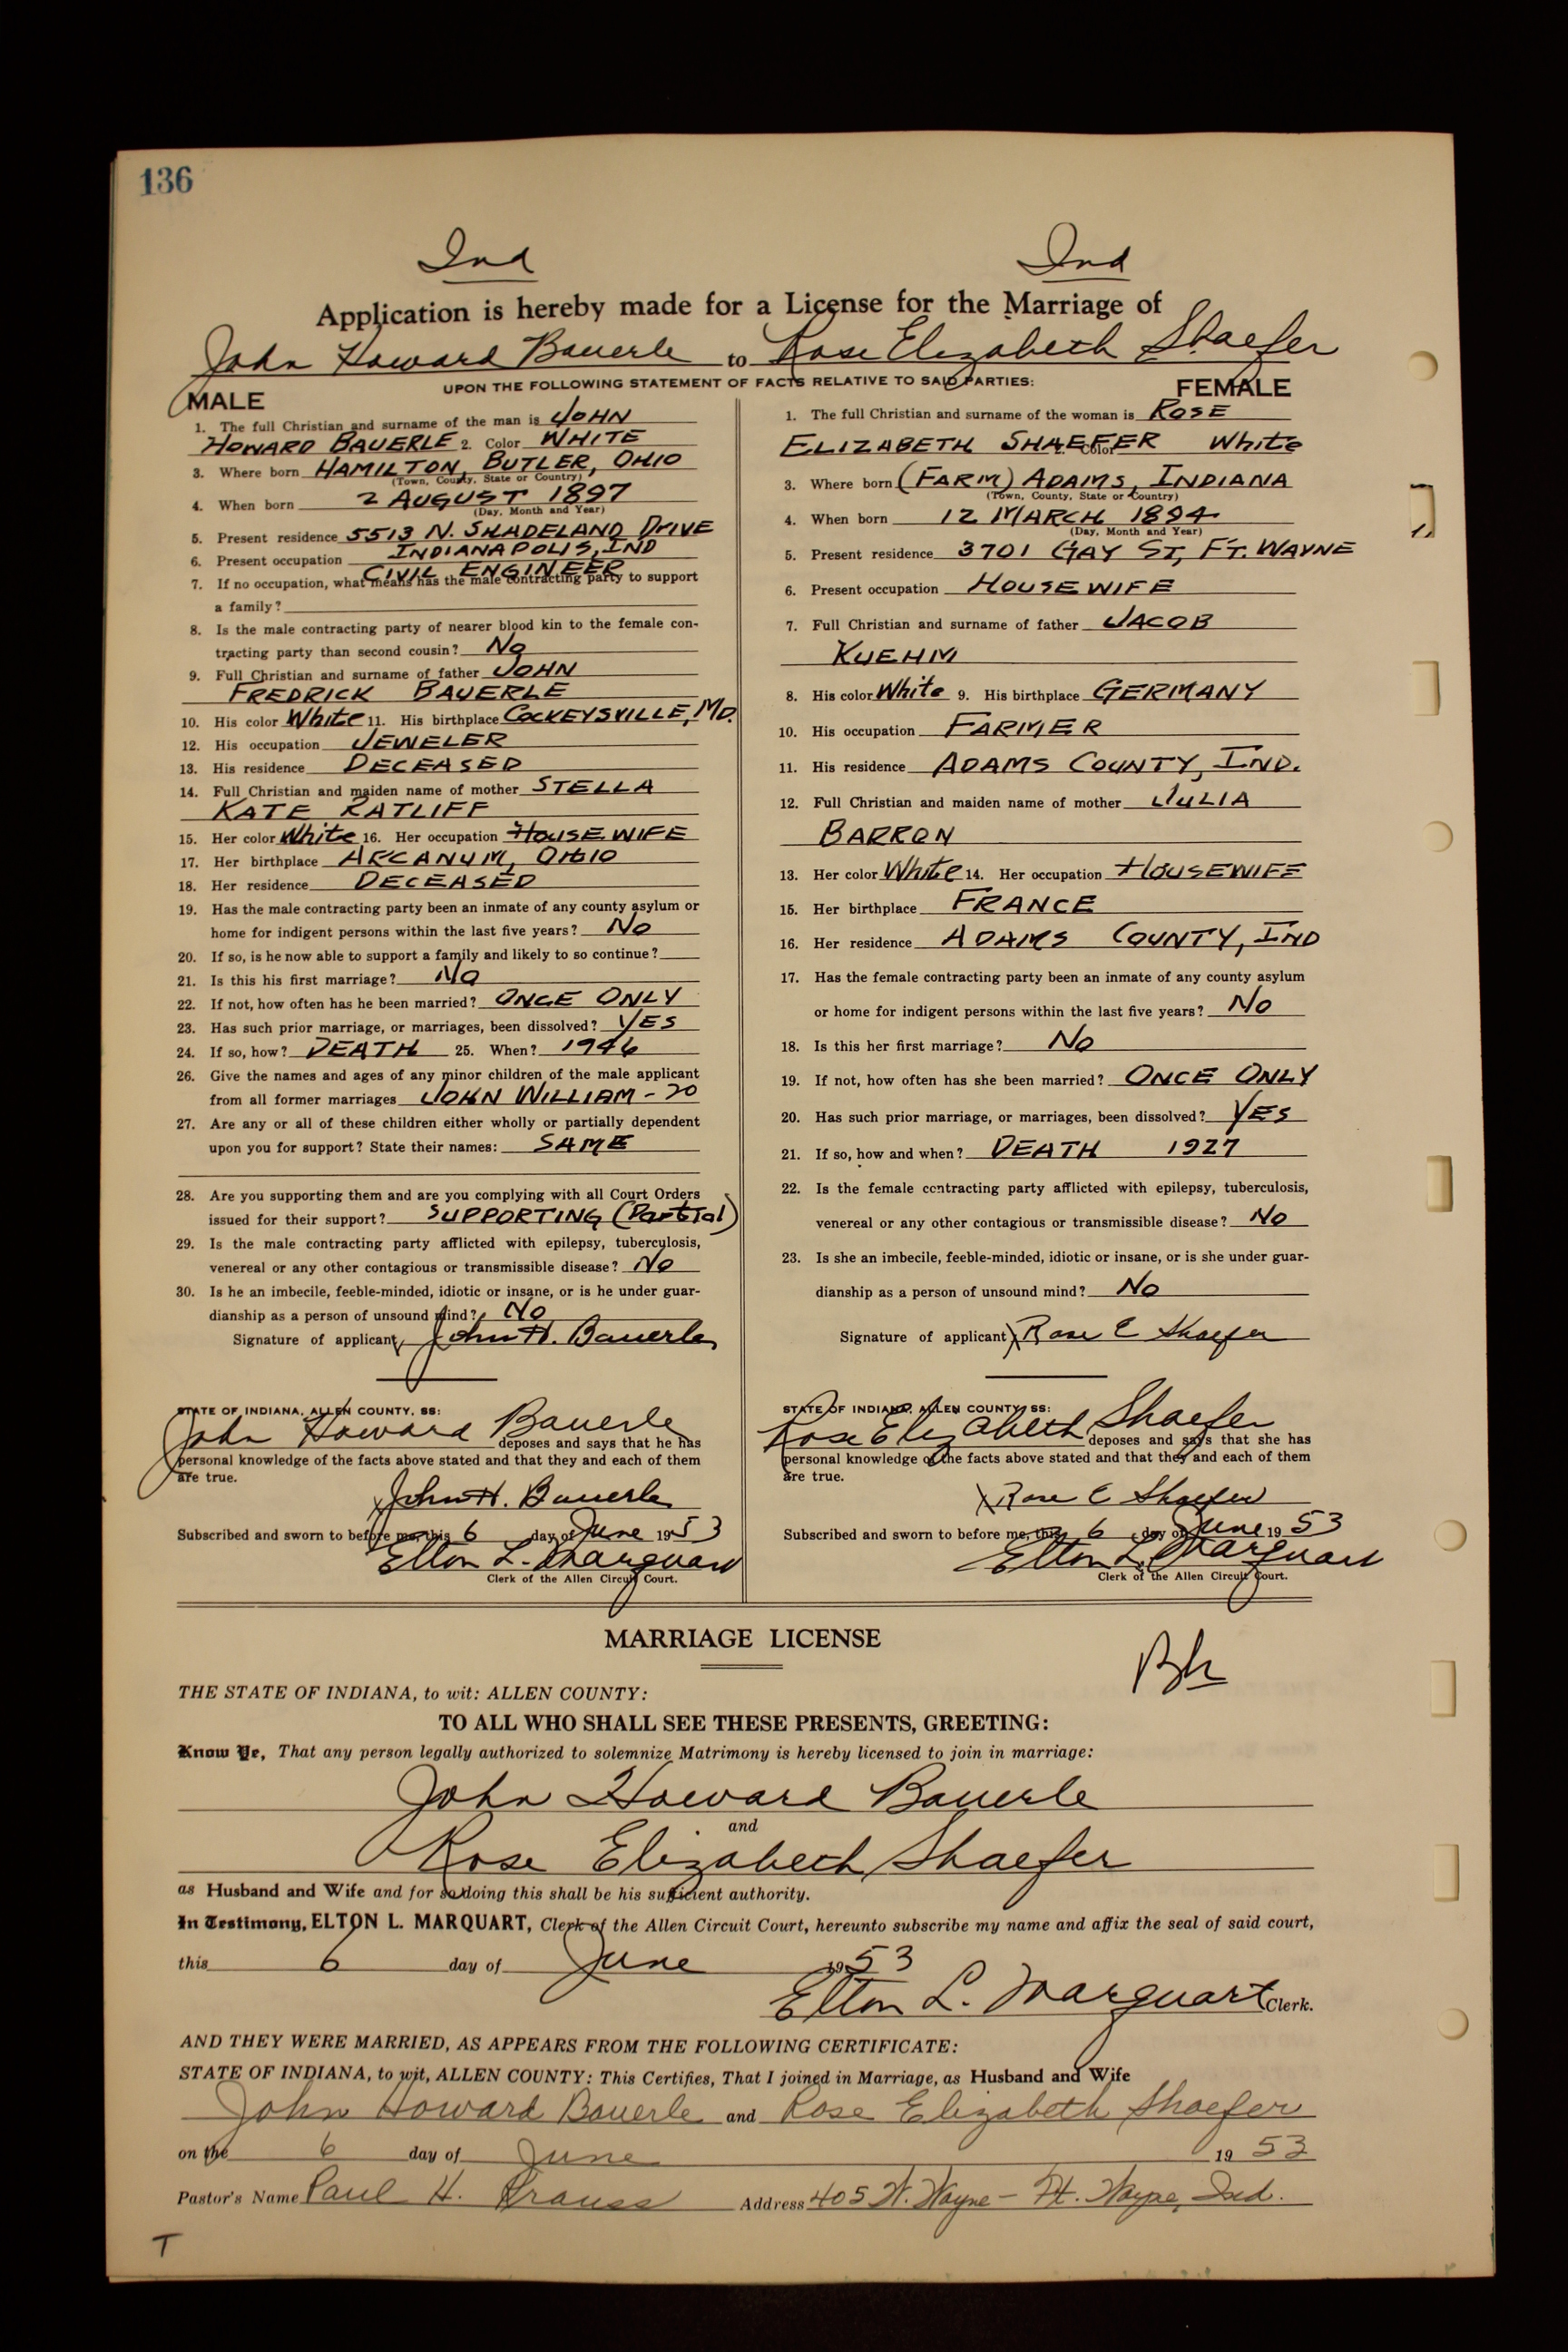 136
Ind Ind
Application is hereby made for a License for the Marriage of
John Howard Bauerle to Rose Elizabeth Shaefer
UPON THE FOLLOWING STATEMENT OF FACTS RELATIVE TO SAID PARTIES:
MALE
1. The full Christian and surname of the man is JOHN
HOWARD BAUERLE 2. Color WHITE
3. Where born HAMILTON, BUTLER, OHIO
(Town, County, State or Country)
4. When born 2 AUGUST 1897
(Day, Month and Year)
5. Present residence 5513 N. SHADELAND DRIVE
INDIANAPOLIS, IND
6. Present occupation
CIVIL ENGINEER
7. If no occupation, what means has the male contracting party to support
a family?
8. Is the male contracting party of nearer blood kin to the female con-
tracting party than second cousin? No
9. Full Christian and surname of father JOHN
FREDRICK BAUERLE
10. His color White 11. His birthplace COCKEYSVILLE, MD.
12. His occupation JEWELER
13. His residence DECEASED
14. Full Christian and maiden name of mother STELLA
KATE RATLIFF
15. Her color White 16. Her occupation HOUSEWIFE
17. Her birthplace ARCANUM, OHIO
18. Her residence DECEASED
19. Has the male contracting party been an inmate of any county asylum or
home for indigent persons within the last five years? No
20. If so, is he now able to support a family and likely to so continue?
21. Is this his first marriage? No
22. If not, how often has he been married? ONCE ONLY
23. Has such prior marriage, or marriages, been dissolved? YES
24. If so, how? DEATH 25. When? 1946
26. Give the names and ages of any minor children of the male applicant
from all former marriages JOHN WILLIAM - 20
27. Are any or all of these children either wholly or partially dependent
upon you for support? State their names: SAME
28. Are you supporting them and are you complying with all Court Orders
issued for their support? SUPPORTING (Partial)
29. Is the male contracting party afflicted with epilepsy, tuberculosis,
venereal or any other contagious or transmissible disease? No
30. Is he an imbecile, feeble-minded, idiotic or insane, or is he under guar-
dianship as a person of unsound mind? No
Signature of applicant John H. Bauerle
STATE OF INDIANA, ALLEN COUNTY, SS:
John Howard Bauerle deposes and says that he has
personal knowledge of the facts above stated and that they and each of them
are true.
John H. Bauerle
Subscribed and sworn to before me, this 6 day of June 1953
Elton L. Marquart
Clerk of the Allen Circuit Court.
FEMALE
1. The full Christian and surname of the woman is ROSE
ELIZABETH SHAEFER 2. Color White
3. Where born (FARM) ADAMS, INDIANA
(Town, County, State or Country)
4. When born 12 MARCH 1894
(Day, Month and Year)
5. Present residence 3701 GAY ST, FT. WAYNE
6. Present occupation HOUSEWIFE
7. Full Christian and surname of father JACOB
KUEHM
8. His color White 9. His birthplace GERMANY
10. His occupation FARMER
11. His residence ADAMS COUNTY, IND.
12. Full Christian and maiden name of mother JULIA
BARRON
13. Her color White 14. Her occupation HOUSEWIFE
15. Her birthplace FRANCE
16. Her residence ADAMS COUNTY, IND
17. Has the female contracting party been an inmate of any county asylum
or home for indigent persons within the last five years? No
18. Is this her first marriage? No
19. If not, how often has she been married? ONCE ONLY
20. Has such prior marriage, or marriages, been dissolved? YES
21. If so, how and when? DEATH 1927
22. Is the female contracting party afflicted with epilepsy, tuberculosis,
venereal or any other contagious or transmissible disease? No
23. Is she an imbecile, feeble-minded, idiotic or insane, or is she under guar-
dianship as a person of unsound mind? No
Signature of applicant Rose E Shaefer
STATE OF INDIANA, ALLEN COUNTY, SS:
Rose Elizabeth Shaefer deposes and says that she has
personal knowledge of the facts above stated and that they and each of them
are true.
Rose E Shaefer
Subscribed and sworn to before me, this 6 day of June 1953
Elton L. Marquart
Clerk of the Allen Circuit Court.
MARRIAGE LICENSE
THE STATE OF INDIANA, to wit: ALLEN COUNTY:
TO ALL WHO SHALL SEE THESE PRESENTS, GREETING:
Know Ye, That any person legally authorized to solemnize Matrimony is hereby licensed to join in marriage:
John Howard Bauerle
and
Rose Elizabeth Shaefer
as Husband and Wife and for so doing this shall be his sufficient authority.
In Testimony, ELTON L. MARQUART, Clerk of the Allen Circuit Court, hereunto subscribe my name and affix the seal of said court,
this 6 day of June 1953
Elton L. Marquart Clerk.
AND THEY WERE MARRIED, AS APPEARS FROM THE FOLLOWING CERTIFICATE:
STATE OF INDIANA, to wit, ALLEN COUNTY: This Certifies, That I joined in Marriage, as Husband and Wife
John Howard Bauerle and Rose Elizabeth Shaefer
on the 6 day of June 1953
Pastor's Name Paul H. Krauss Address 405 W. Wayne - Ft. Wayne, Ind.
T